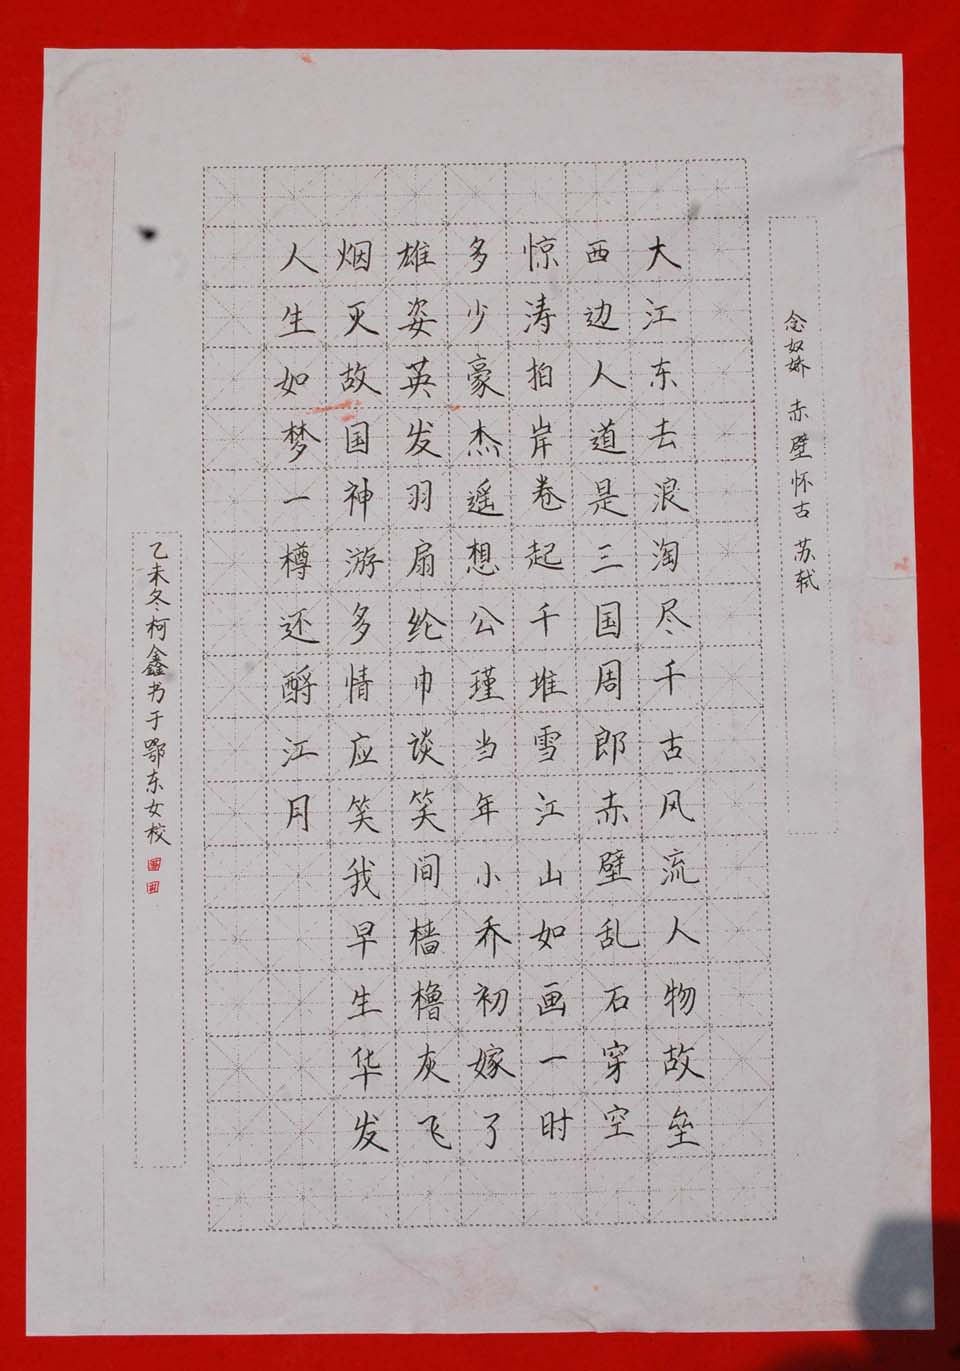 念奴娇 赤壁怀古 苏轼
大江东去浪淘尽千古风流人物故垒
西边人道是三国周郎赤壁乱石穿空
惊涛拍岸卷起千堆雪江山如画一时
多少豪杰遥想公瑾当年小乔初嫁了
雄姿英发羽扇纶巾谈笑间樯橹灰飞
烟灭故国神游多情应笑我早生华发
人生如梦一樽还酹江月
乙未冬柯鑫书于鄂东女校